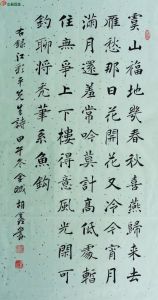 雲山福地幾春秋喜燕歸來去
雁愁那日花開花又冷今宵月
滿月還羞常吟莫計高低處暫
住無爭上下樓得意風光閑可
釣聊將禿筆系魚鉤
右錄江彩平先生詩 四午冬金城胡鑫